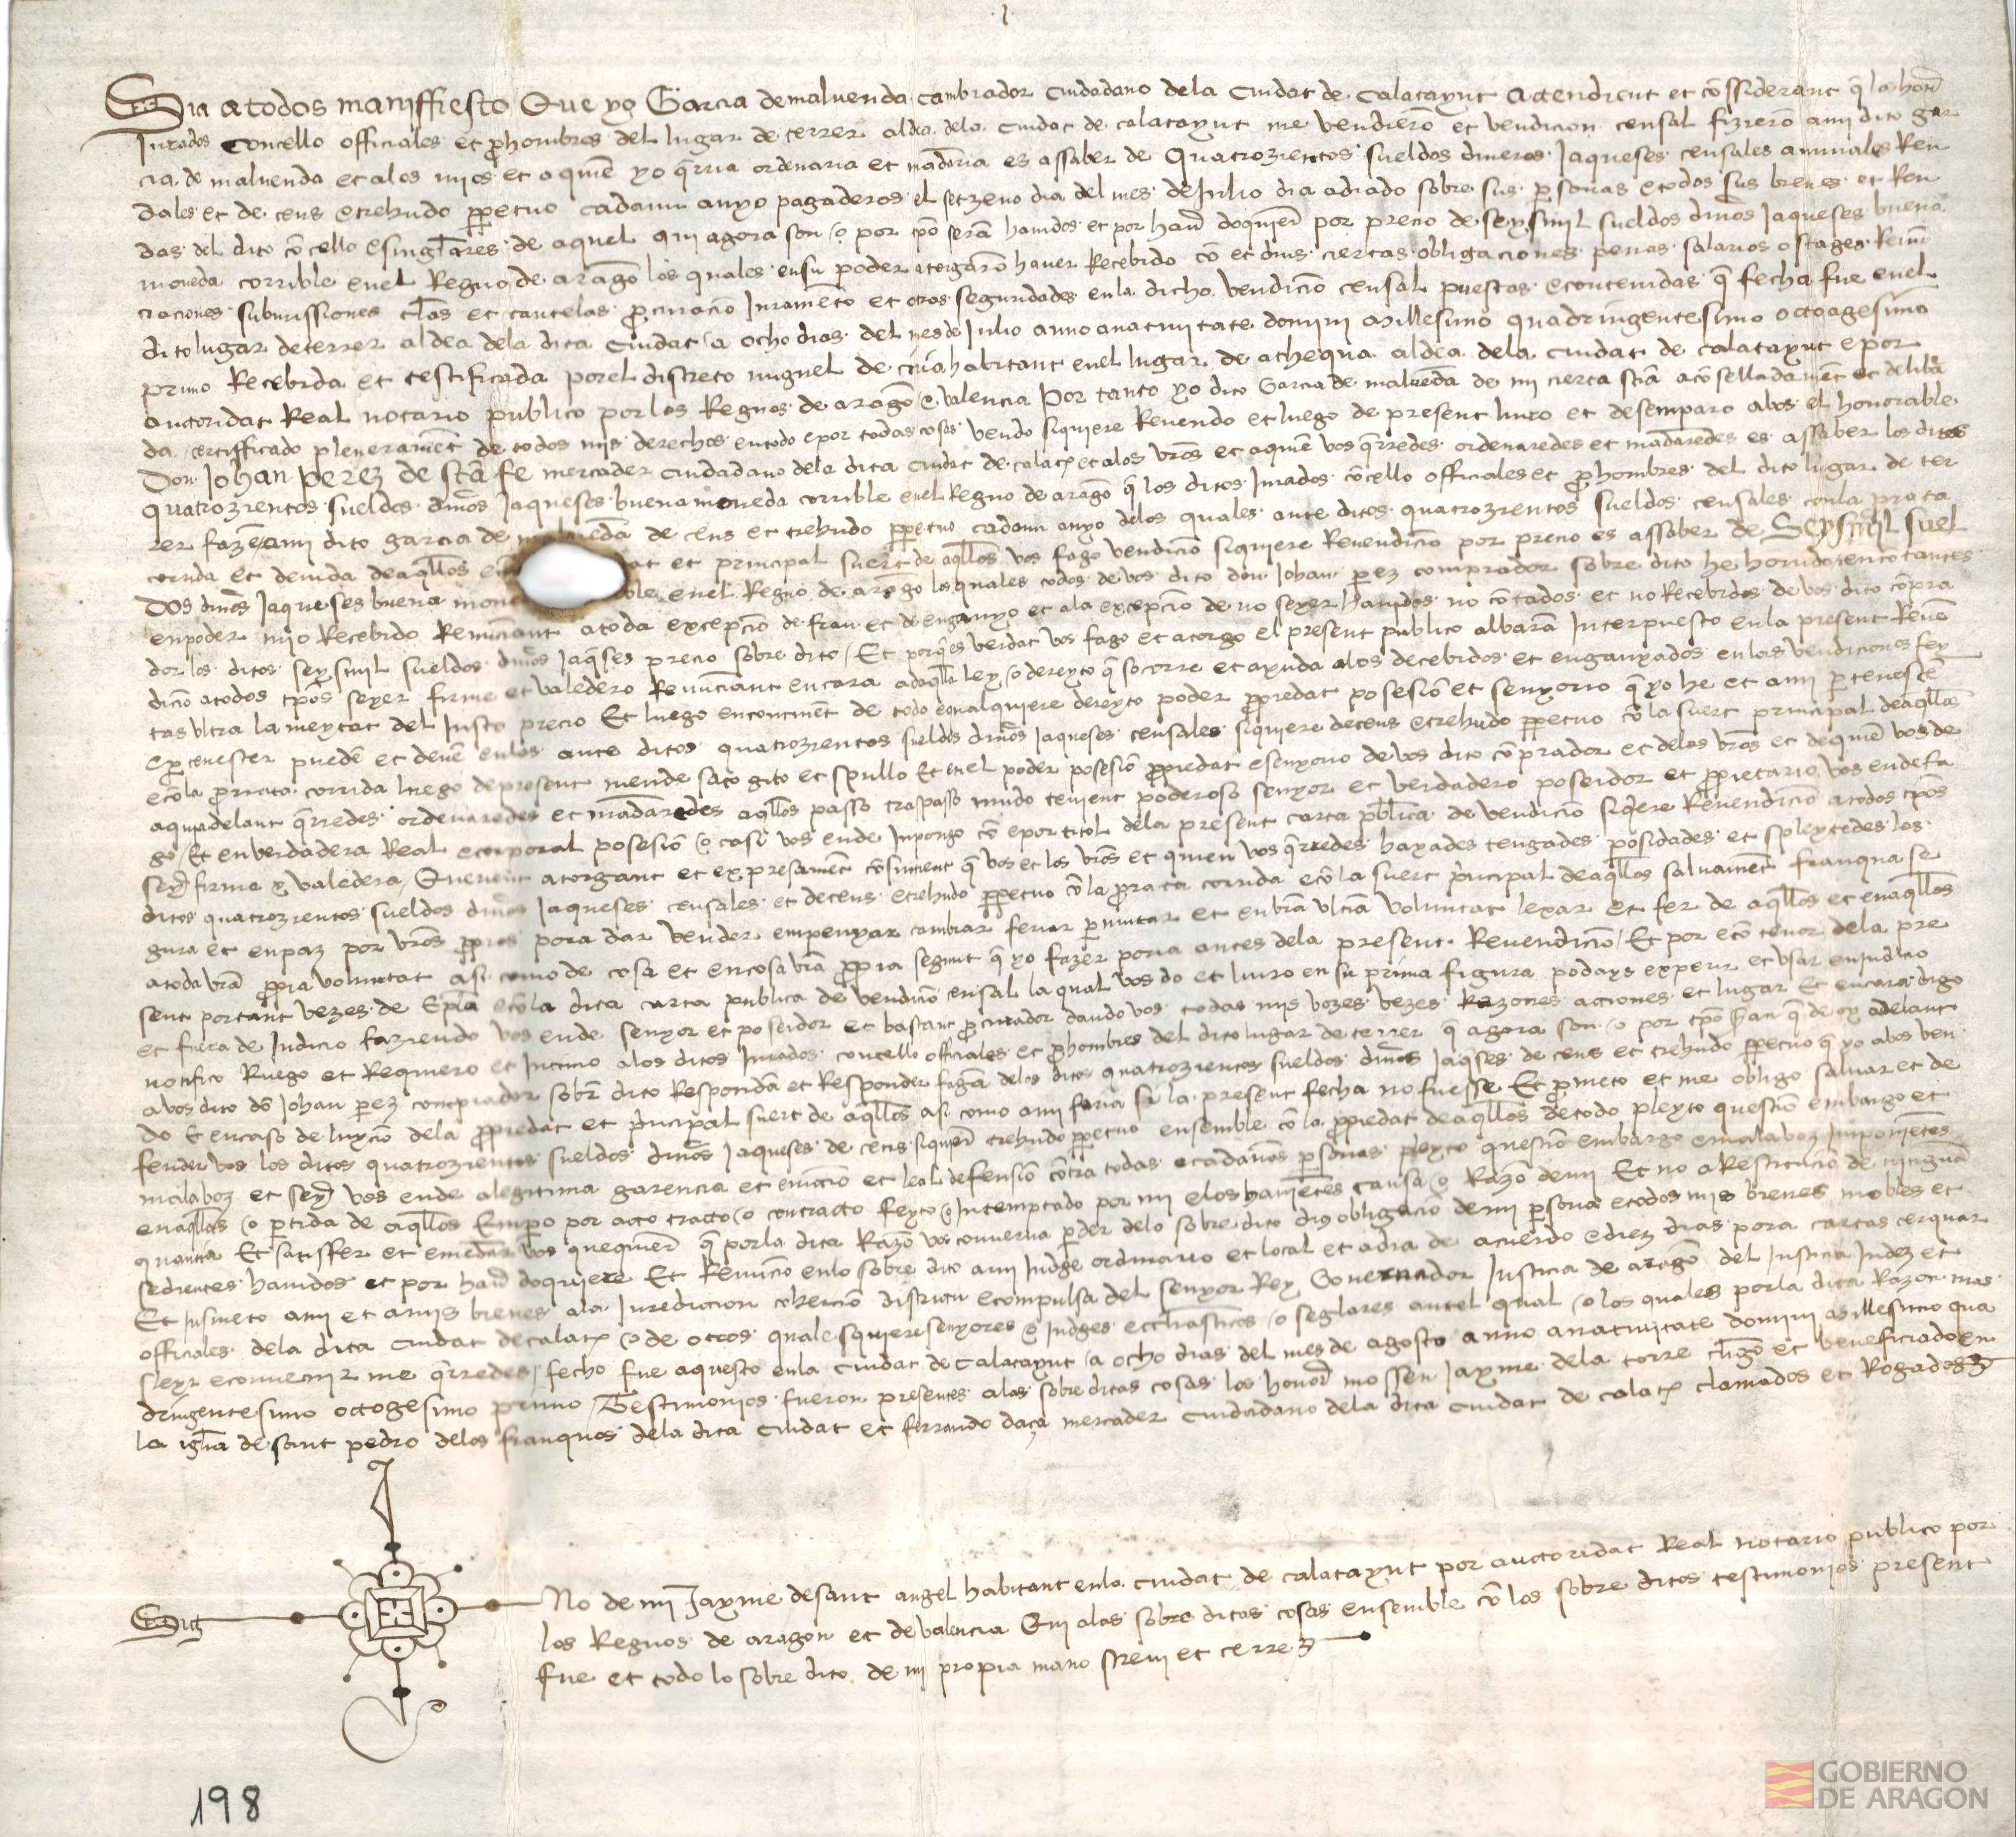 Sia atodos maniffiesto Que yo Garcia demaluenda cambiador Ciudadano dela Ciudat de Calatayut Attendient et cōssiderant q̄ los hon̄
Jurados Concello officiales et p̄hombres del lugar de terrer aldea dela Ciudat de calatayut me vendierō et vendicion censal fizierō ami dito gar
cia de maluenda et alos mios et a quiē yo q̄rria ordenaria et mādaria es assaber de Quatrozientos sueldos dineros Jaqueses censales annuales Ren
dales et de cens etrehudo ꝑpetuo cadaun anyo pagaderos el setzeno dia del mes de Julio dia adiado sobre sus ꝑsonas etodos sus bienes et Ren
das del dito cōcello esinglares de aquel qui agora son o por tp̄o serā hauidos et por hau̅ doquiere por precio de seys mil sueldos din̄os Jaqueses buena
moneda corrible enel Regno de aragō los quales ensu poder atorgarō hauer Recebido cō et dius ciertas obligaciones penas salarios ostages Renū
ciaciones submissiones cl̄as et cautelas ꝓcuraciō Juramēto et otras seguridades enla dicha vendiciō censal puestas econtenidas q̄ fecha fue enel
dito lugar deterrer aldea dela dita Ciudat a ocho dias del mes de Julio anno anatiuitate domini Millesimo quadringentesimo octoagesimo
primo Recebida et testificada porel discreto miguel de habitant enel lugar de athequa aldea dela ciudat de calatayut epor
auctoridat Real notario publico porlos Regnos de aragō e valencia Por tanto yo dito Garcia de maluēda de mi cierta sciā acōselladamēt et delibā
da certifficado pleneramēt de todos mis derechos entodo epor todas cosas vendo siquiere Reuendo et luego de present liuro et desemparo abos el honorable
Don Johan perez de sctā fe mercader ciudadano dela dita ciudat de calatꝭ et alos vr̄os et aquiē vos q̄rredes ordenaredes et mādaredes es assaber los ditos
quatrozientos sueldos din̄os Jaqueses buena moneda corrible enel Regno de aragō q̄ los ditos Jurados cōcello officiales et ꝓhombres del dito lugar de ter
rer fazē ami dito garcia de de cens et trehudo ꝑpetuo cadaun anyo delos quales ante ditos quatrozientos sueldos censales conla prata
corrida et deuida deaq̄llos et principal suert de aq̄llos vos fago vendiciō siquiere Reuendiciō por precio es assaber de Seysmil suel
dos din̄os Jaqueses buena mone ble enel Regno de aragō los quales todos de vos dito don Johan ꝑez comprador sobre dito he hauido en contantes
enpoder mio Recebido Renūciant atoda excepciō de frau et de enganyo et ala excepciō de no seyer hauidos no cōtados et no Recebidos de vos dito cōpra
dor los ditos seys mil sueldos din̄os Jaq̄ses precio sobre dito Et porq̄es verdat vos fago et atorgo el present publico albarā Interpuesto enla present Reuē
diciō atodos tp̄os seyer firme et valedero Renūciant encara adaq̄lla ley o dereyto q̄ socorre et ayuda alos decebidos et enganyados enlas vendiciones fey
tas vltra la meytat del Justo precio Et luego encontinēt de todo eonalquiere dereyto poder ꝓpiedat posesiō et senyorio q̄ yo he et ami ꝑtenesce
eꝑtenester puedē et deuē enlos ante ditos quatrozientos sueldos din̄os Jaqueses censales siquiere decens etrehudo ꝑpetuo cō la suert principal deaq̄llos
ecōla prata corrida luego depresent mende saco gito et spullo Et enel poder posesiō ꝓpiedat esenyorio de vos dito cōprador et delos vr̄os et dequiē vos de
aquiadelant q̄rredes ordenaredes et mādaredes aq̄llos passo traspasso mudo tenient poderoso senyor et verdadero poseidor et ꝓpietario vos endefa
go Et enverdadera Real ecorporal posesiō o casi vos ende Inpongo cō epor titol dela present carta pb̄lica de vendiciō siq̄ere Reuendiciō atodos tp̄os
sey̅ firme e valedera Querient atorgant et expresamēt cōsintient q̄ vos et los vr̄os et quien vos q̄rredes hayades tengades posidades et spleytedes los
ditos quatrozientos sueldos din̄os Jaqueses censales et decens etrehudo ꝑpetuo cōla prata corrida ecōla suert p̄ncipal deaq̄llos saluamēt franqua se
gura et enpaz por vr̄os ꝓpios pora dar vender empenyar cambiar feriar ꝑmutar et en vr̄a vltīa voluntat lexar et fer de aq̄llos et enaq̄llos
atoda vr̄a ꝓpia voluntat asi como de cosa et encosa vr̄a ꝓpia segunt q̄ yo fazer poria antes dela present Reuendiciō Et por ecō tenor dela pre
sent portant vezes de Epl̄a ecōla dita carta publica de vendiciō censal la qual vos do et liuro en su prima figura podays experir et vsar enjudicio
et fuera de Judicio faziendo vos ende senyor et poseidor et bastant ꝓcurador dando vos todas mis vozes vezes Razones acciones et lugar Et encara digo
notifico Ruego et Requiero et Intimo alos ditos Jurados concello officiales et ꝓhombres del dito lugar de terrer q̄ agora son o por tp̄o serān q̄ de oy adelant
avos dito dō Johan ꝑez comprador sobr̄ dito Respondā et Responder fagā delos ditos quatrozientos sueldos din̄os Jaq̄ses de cens et trehudo ꝑpetuo q̄ yo abos ven
do Et encaso de luyciō dela ꝓpiedat et p̄ncipal suert de aq̄llos asi como ami faria si la present fecha no fuesse Et ꝓmeto et me obligo saluar et de
fender vos los ditos quatrozientos sueldos din̄os Jaqueses de cens siquier̄ trehudo ꝑpetuo ensemble cō la ꝓpiedat deaq̄llos detodo pleyto questiō embargo et
malaboz et sey̅ vos ende alegitima garencia et euicciō et leal defensiō cōtra todas ecadaūas ꝑsonas pleyto questiō embargo emalaboz Imponiētes
enaq̄llos o ꝑtida de aq̄llos Empo por acto tracto o contracto feyto o Intemptado por mi elos hauiētes causa o Razō demi Et no a Restituciō de ninguā
quantia Et satisfer et emēdar vos quequier̄ q̄ porla dita Razō vos conuerna ꝑder delo sobre dito dius obligaciō de mi ꝑsona etodos mis bienes mobles et
sedientes hauidos et por hau̅ doquiere Et Renūcio enlo sobre dito ami Judge ordinario et local et adia de acuerdo ediez dias pora cartas cerquar
Et Jusmeto ami et amis bienes ala Jurediccion cohercio districtu ecompulsa del senyor Rey Gouernador Justicia de aragō del Justicia Judez et
officiales dela dita ciudat decalatꝭ o de otros qualesquiere senyores o Judges eccl̄iasticos o seglares antel qual o los quales porla dita Razon mas
seyr econuenir me q̄rredes fecho fue aquesto enla Ciudat de Calatayut a ocho dias del mes de agosto anno anatiuitate domini Millesimo qua
dringentesimo octogesimo primo Testimonios fueron presentes alas sobre ditas cosas los honor̄ mossen Jayme dela torre cl̄igo et beneficiado en
la igl̄ia de sant pedro delos franquos dela dita ciudat et ferrando daça mercader ciudadano dela dita ciudat de calatꝭ clamados et Rogados
Sig No de mi Jayme desant angel habitant enla ciudat de calatayut por auctoridat Real notario publico por
los Regnos de aragon et de valencia Qui alas sobre ditas cosas ensemble cō los sobre ditos testimonios present
fue et todo lo sobre dito de mi propia mano screui et cerre
198
GOBIERNO
DE ARAGON